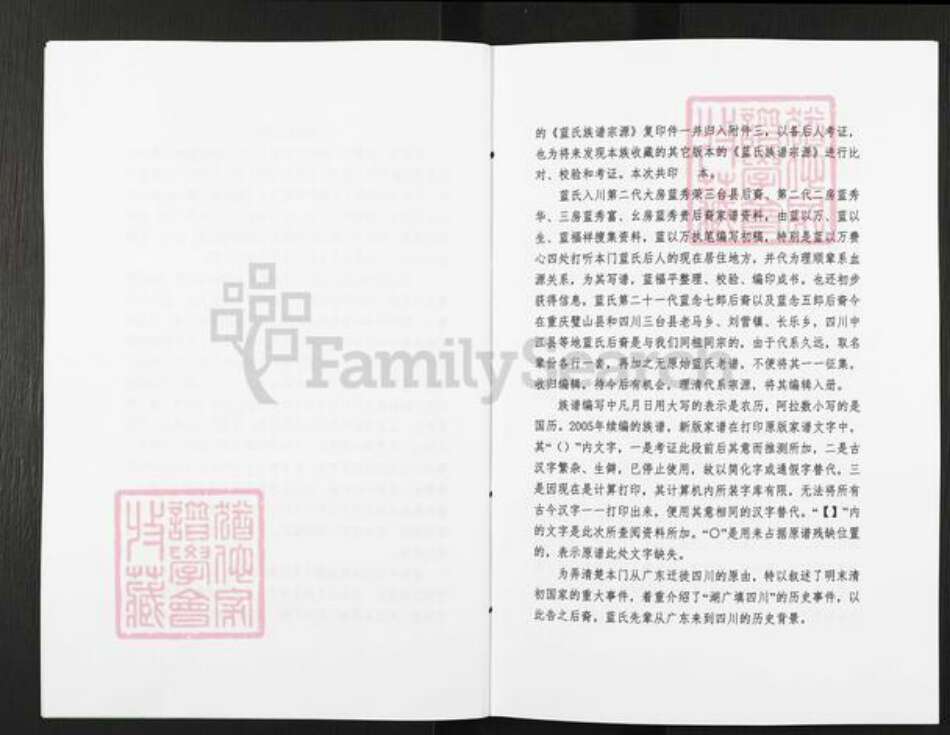 的《蓝氏族谱宗源》复印件一并归入附件三，以备后人考证，
也为将来发现本族收藏的其它版本的《蓝氏族谱宗源》进行比
对、校验和考证。本次共印　本。
蓝氏入川第二代大房蓝秀荣三台县后裔、第二代二房蓝秀
华、三房蓝秀富、幺房蓝秀贵后裔家谱资料，由蓝以万、蓝以
生、蓝福祥搜集资料，蓝以万执笔编写初稿，特别是蓝以万费
心四处打听本门蓝氏后人的现在居住地方，并代为理顺辈系血
源关系，为其写谱，蓝福平整理、校验、编印成书。也还初步
获得信息，蓝氏第二十一代蓝念七郎后裔以及蓝念五郎后裔今
在重庆璧山县和四川三台县老马乡、刘营镇、长乐乡，四川中
江县等地蓝氏后裔是与我们同祖同宗的。由于代系久远，取名
辈份各行一套，再加之无原始蓝氏老谱，不便将其一一征集，
收归编辑，待今后有机会，理清代系宗源，将其编辑入册。
族谱编写中凡月日用大写的表示是农历，阿拉数小写的是
国历。2005年续编的族谱，新版家谱在打印原版家谱文字中，
其“（）”内文字，一是考证此段前后其意而推测所加，二是古
汉字繁杂、生僻，已停止使用，故以简化字或通假字替代。三
是因现在是计算打印，其计算机内所装字库有限，无法将所有
古今汉字一一打印出来，便用其意相同的汉字替代。“【】”内
的文字是此次所查阅资料所加。“〇”是用来占据原谱残缺位置
的，表示原谱此处文字缺失。
为弄清楚本门从广东迁徙四川的原由，特以叙述了明末清
初国家的重大事件，着重介绍了“湖广填四川”的历史事件，以
此告之后裔，蓝氏先辈从广东来到四川的历史背景。
FamilySearch